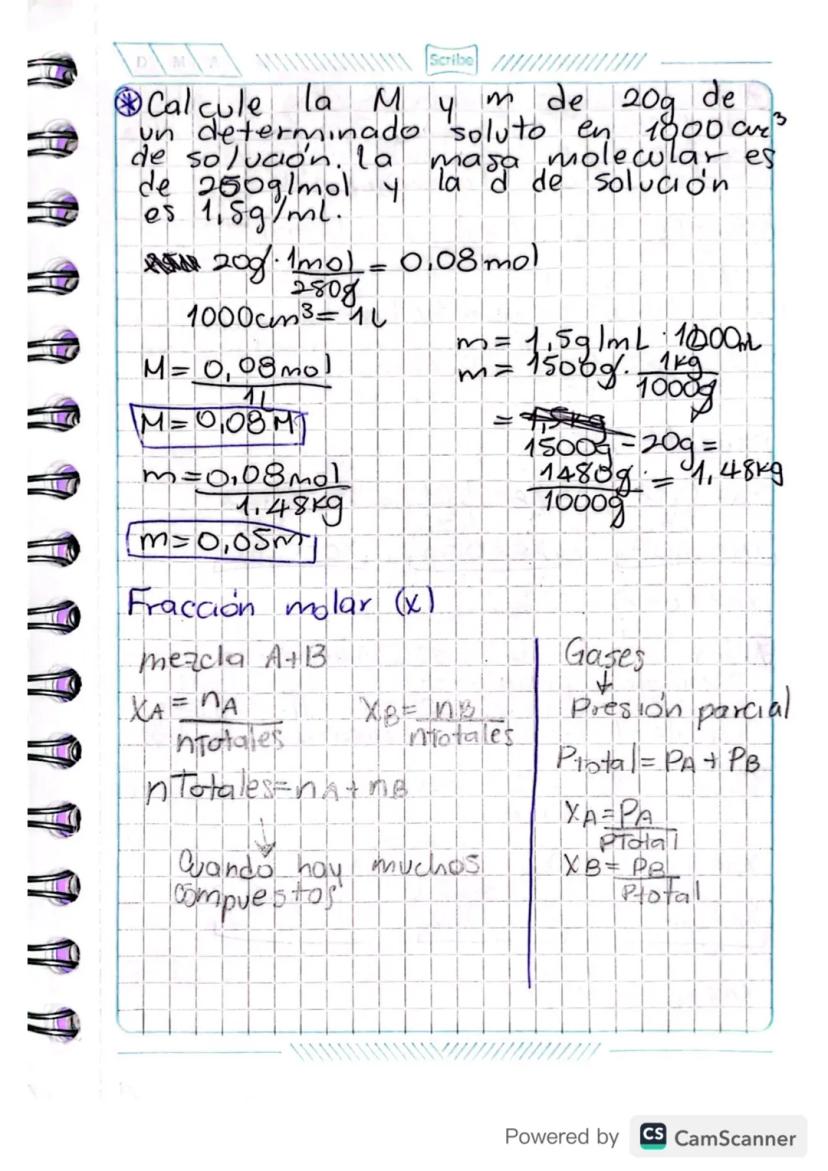 D M A
Scribe
* Calcule la M y m de 20g de
un determinado soluto en 1000 cm³
de solución. la masa molecular es
de 250g/mol y la d de solución
es 1,5g/mL.
20g · 1mol = 0.08mol
250g
1000cm³ = 1L
M = 0,08mol
1L
M = 0,08M
m = 0,08mol
1.48Kg
m = 0,05m
m = 1,5g/mL · 1000mL
m = 1500g · 1Kg
1000g
=
1500g - 20g =
1480g = 1,48Kg
1000g
Fracción molar (x)
mezcla A+B
XA = nA
nTotales
XB = nB
nTotales
nTotales = nA + nB
↓
Cuando hay muchos
compuestos
Gases
↓
Presión parcial
Ptotal = PA + PB
XA = PA
PTotal
XB = PB
Ptotal
Powered by CS CamScanner